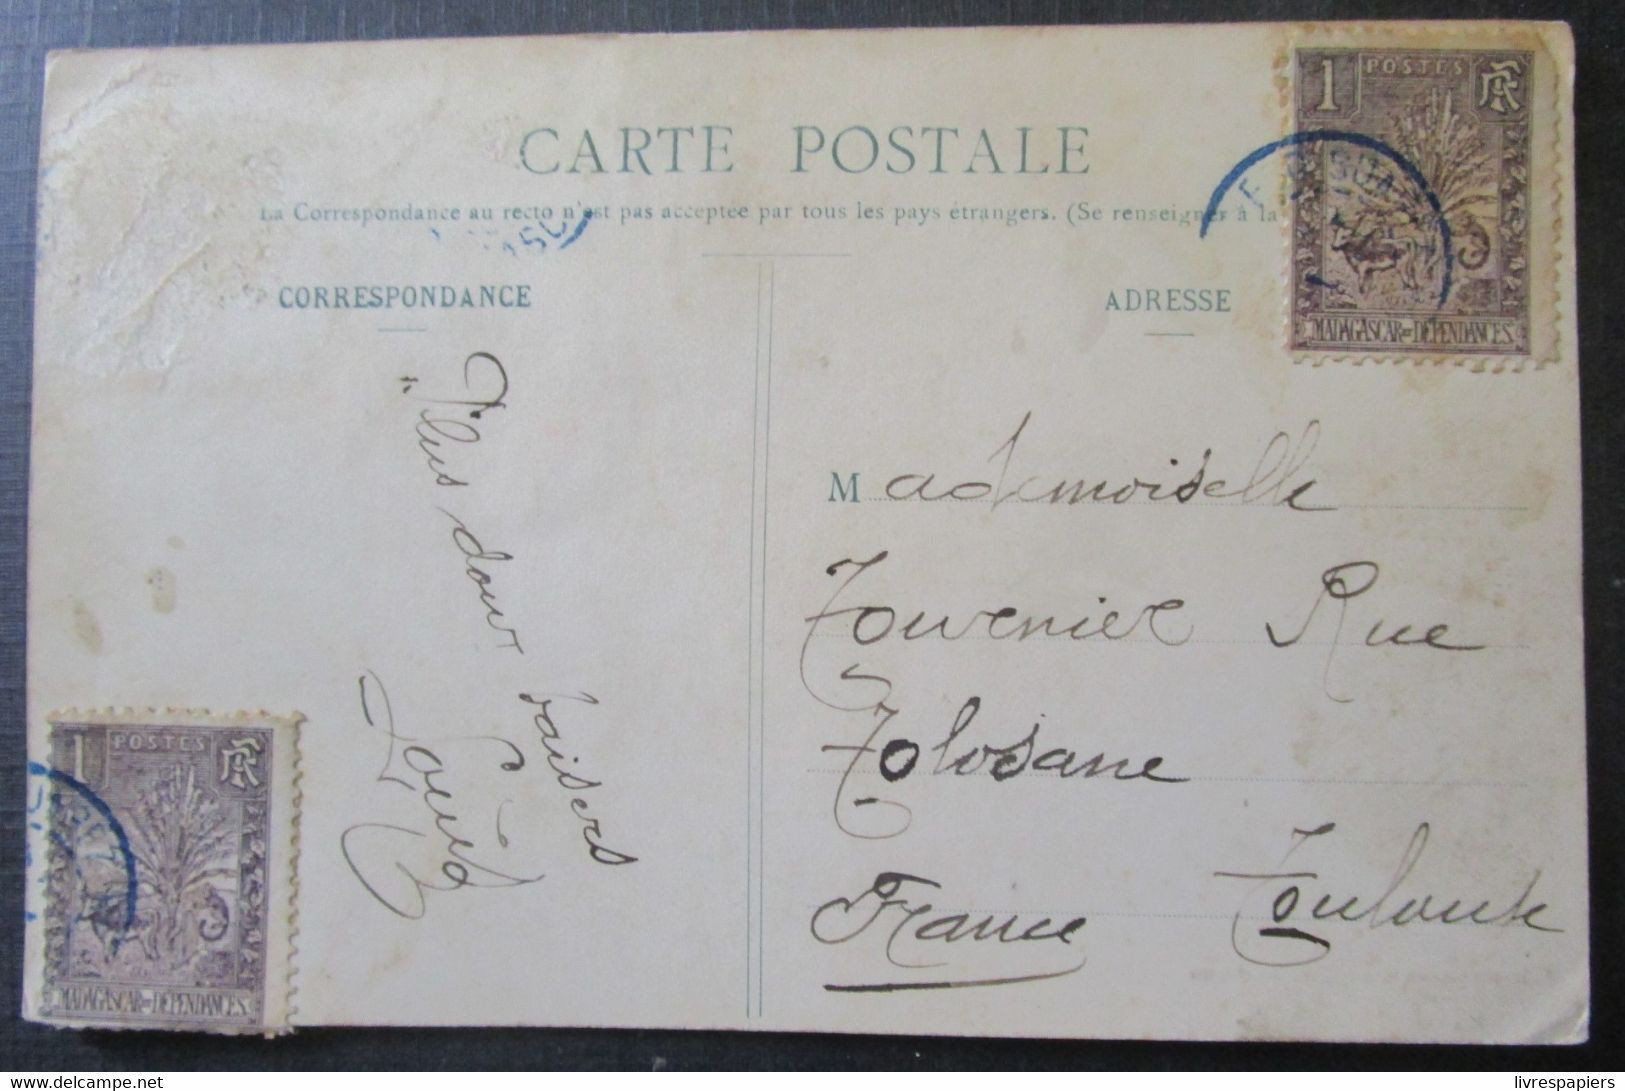 CARTE POSTALE
La Correspondance au recto n'est pas acceptée par tous les pays étrangers. (Se renseigner à la
CORRESPONDANCE
ADRESSE
1 POSTES RF
MADAGASCAR ET DÉPENDANCES
Plus doux baisers
Louis
Mademoiselle
Tournier Rue
Tolosane
Toulouse
France
1 POSTES RF
MADAGASCAR ET DÉPENDANCES
livrespapiers